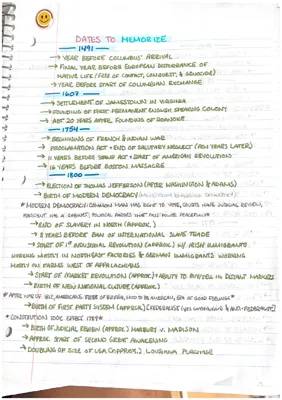 DATES TO MEMORIZE
1491
→ YEAR BEFORE COLUMBUS' ARRIVAL
→ FINAL YEAR BEFORE EUROPEAN DISTURBANCE OF
NATIVE LIFE / FEAR OF CONTACT, CONQUEST, & GENOCIDE)
→ YEAR BEFORE START OF COLUMBIAN EXCHANGE
1607
→ SETTLEMENT OF JAMESTOWN IN VIRGINIA
→ FOUNDING OF FIRST PERMANENT ENGLISH SPEAKING COLONY
→ ABT 20 YEARS AFTER FOUNDING OF ROANOKE
1754
→ BEGINNING OF FRENCH & INDIAN WAR
→ PROCLAMATION ACT + END OF SALUTARY NEGLECT (TEN YEARS LATER)
→ 11 YEARS BEFORE STAMP ACT + START OF AMERICAN REVOLUTION
→ 16 YEARS BEFORE BOSTON MASSACRE
1800
→ ELECTION OF THOMAS JEFFERSON (AFTER WASHINGTON & ADAMS)
→ BIRTH OF MODERN DEMOCRACY
* MODERN DEMOCRACY: COMMON MAN HAS RIGHT TO VOTE, COURTS HAVE JUDICIAL REVIEW,
PRESIDENT HAS A CABINET, POLITICAL PARTIES THAT
→ END OF SLAVERY IN NORTH (APPROX.)
→ 8 YEARS BEFORE BAN OF INTERNATIONAL SLAVE TRADE
→ START OF 1ST INDUSTRIAL REVOLUTION (APPROX.) W/ IRISH IMMIGRANTS
WORKING MOSTLY IN NORTHEAST FACTORIES & GERMAN IMMIGRANTS WORKING
MOSTLY IN FARMS WEST OF APPALACHIANS
→ START OF MARKET REVOLUTION (APPROX.) → ABILITY TO BUY/SELL IN DISTANT MARKETS
→ BIRTH OF NEW NATIONAL CULTURE (APPROX.)
* AFTER WAR OF 1812, AMERICANS PROUD TO BE AMERICAN, ERA OF GOOD FEELINGS *
→ BIRTH OF FIRST PARTY SYSTEM (APPROX.) [FEDERALIST & ANTI-FEDERALIST]
* CONSTITUTION TOOK EFFECT 1789 *
→ BIRTH OF JUDICIAL REVIEW (APPROX.) MARBURY V. MADISON
→ APPROX. START OF SECOND GREAT AWAKENING
→ DOUBLING OF SIZE OF USA (APPROX.) LOUISIANA PURCHASE